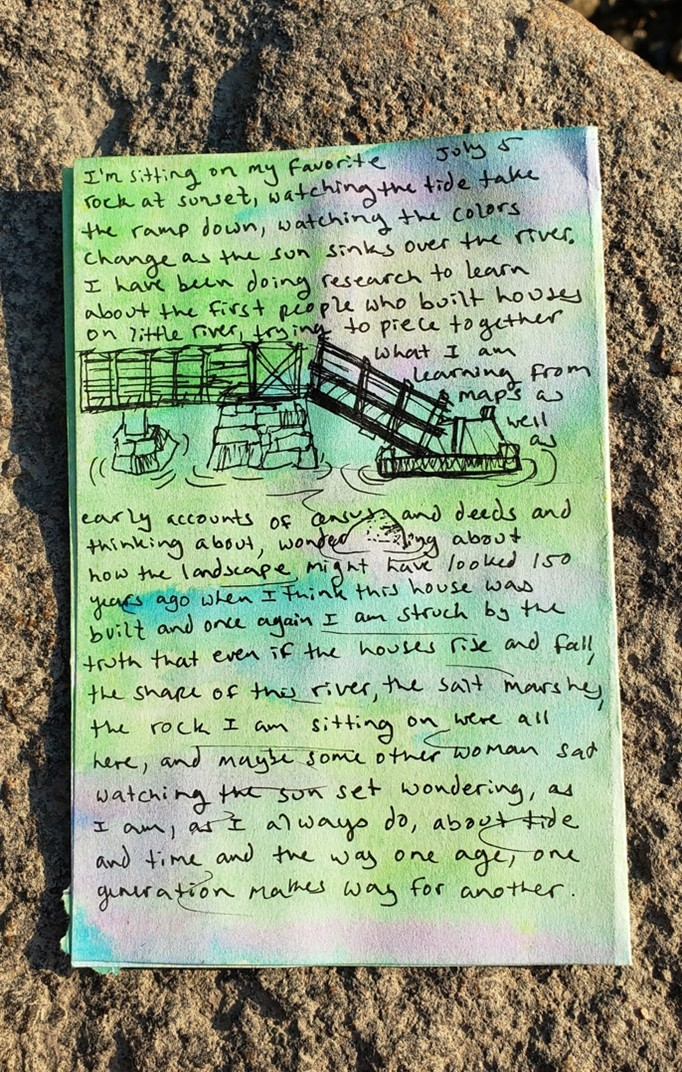 July 5
I'm sitting on my favorite
rock at sunset, watching the tide take
the ramp down, watching the colors
change as the sun sinks over the river.
I have been doing research to learn
about the first people who built houses
on little river, trying to piece together
what I am
learning from
maps as
well
as
early accounts of census and deeds and
thinking about, wondering about
how the landscape might have looked 150
years ago when I think this house was
built and once again I am struck by the
truth that even if the houses rise and fall,
the shape of this river, the salt marshes,
the rock I am sitting on were all
here, and maybe some other woman sat
watching the sun set wondering, as
I am, as I always do, about tide
and time and the way one age, one
generation makes way for another.